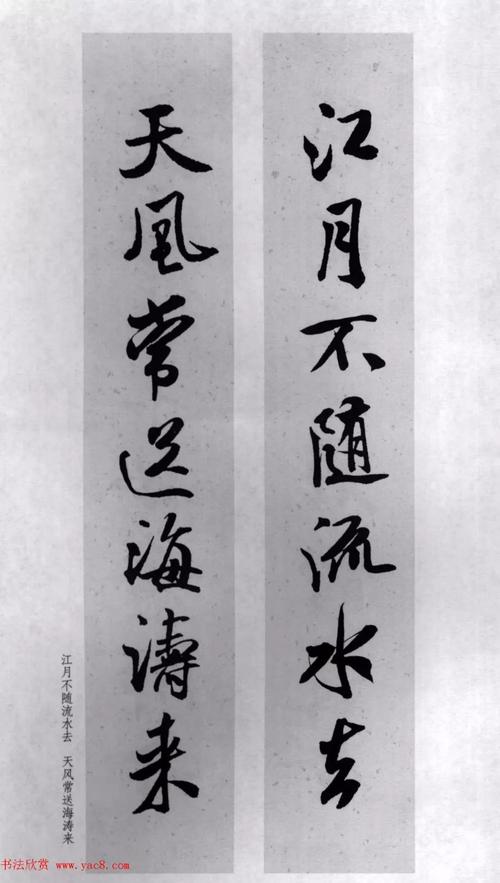 江月不随流水去
天风常送海涛来
江月不随流水去　天风常送海涛来
书法欣赏 www.yac8.com